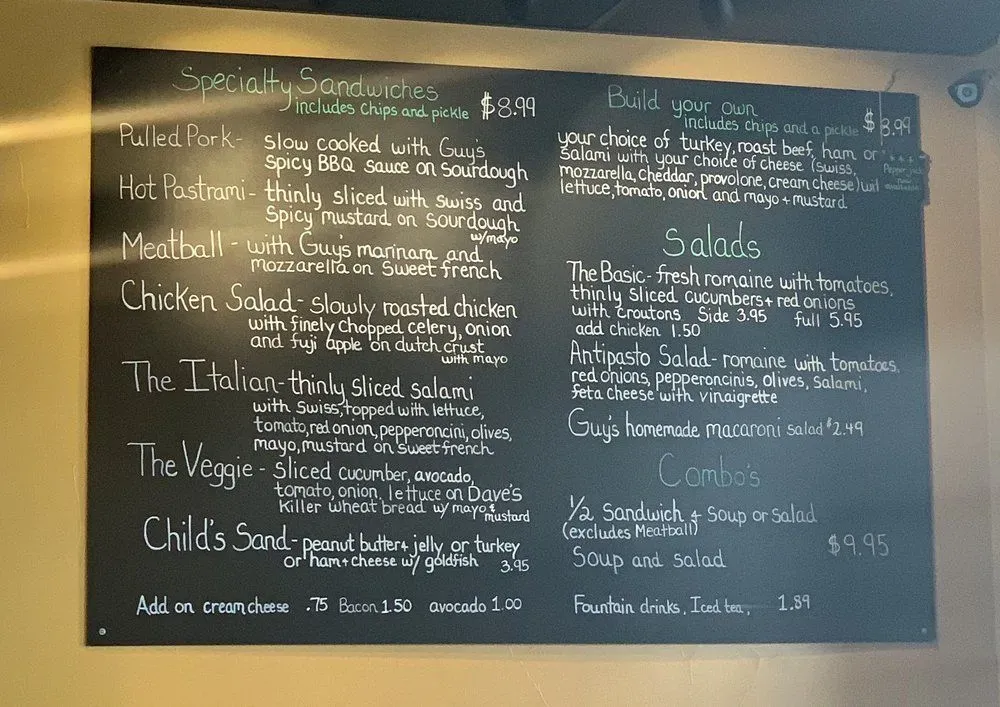 Specialty Sandwiches
includes chips and pickle $8.99
Pulled Pork- slow cooked with Guy's
spicy BBQ sauce on sourdough
Hot Pastrami- thinly sliced with swiss and
spicy mustard on sourdough
w/mayo
Meatball - with Guy's marinara and
mozzarella on sweet french
Chicken Salad- slowly roasted chicken
with finely chopped celery, onion
and fuji apple on dutch crust
with mayo
The Italian- thinly sliced salami
with swiss, topped with lettuce,
tomato, red onion, pepperoncini, olives,
mayo, mustard on sweet french
The Veggie - sliced cucumber, avocado,
tomato, onion, lettuce on Dave's
killer wheat bread w/ mayo +
mustard
Child's Sand- peanut butter + jelly or turkey
or ham + cheese w/ goldfish 3.95
Add on cream cheese .75 Bacon 1.50 avocado 1.00
Build your own
includes chips and a pickle $8.99
your choice of turkey, roast beef, ham or
salami with your choice of cheese (swiss,
mozzarella, cheddar, provolone, cream cheese) wil
Pepper jack
now
available
lettuce, tomato, onion and mayo + mustard
Salads
The Basic- fresh romaine with tomatoes,
thinly sliced cucumbers + red onions
with croutons Side 3.95 full 5.95
add chicken 1.50
Antipasto Salad- romaine with tomatoes,
red onions, pepperoncinis, olives, salami,
feta cheese with vinaigrette
Guy's homemade macaroni salad $2.49
Combo's
1/2 Sandwich + Soup or Salad
(excludes Meatball)
$9.95
Soup and salad
Fountain drinks, Iced tea, 1.89